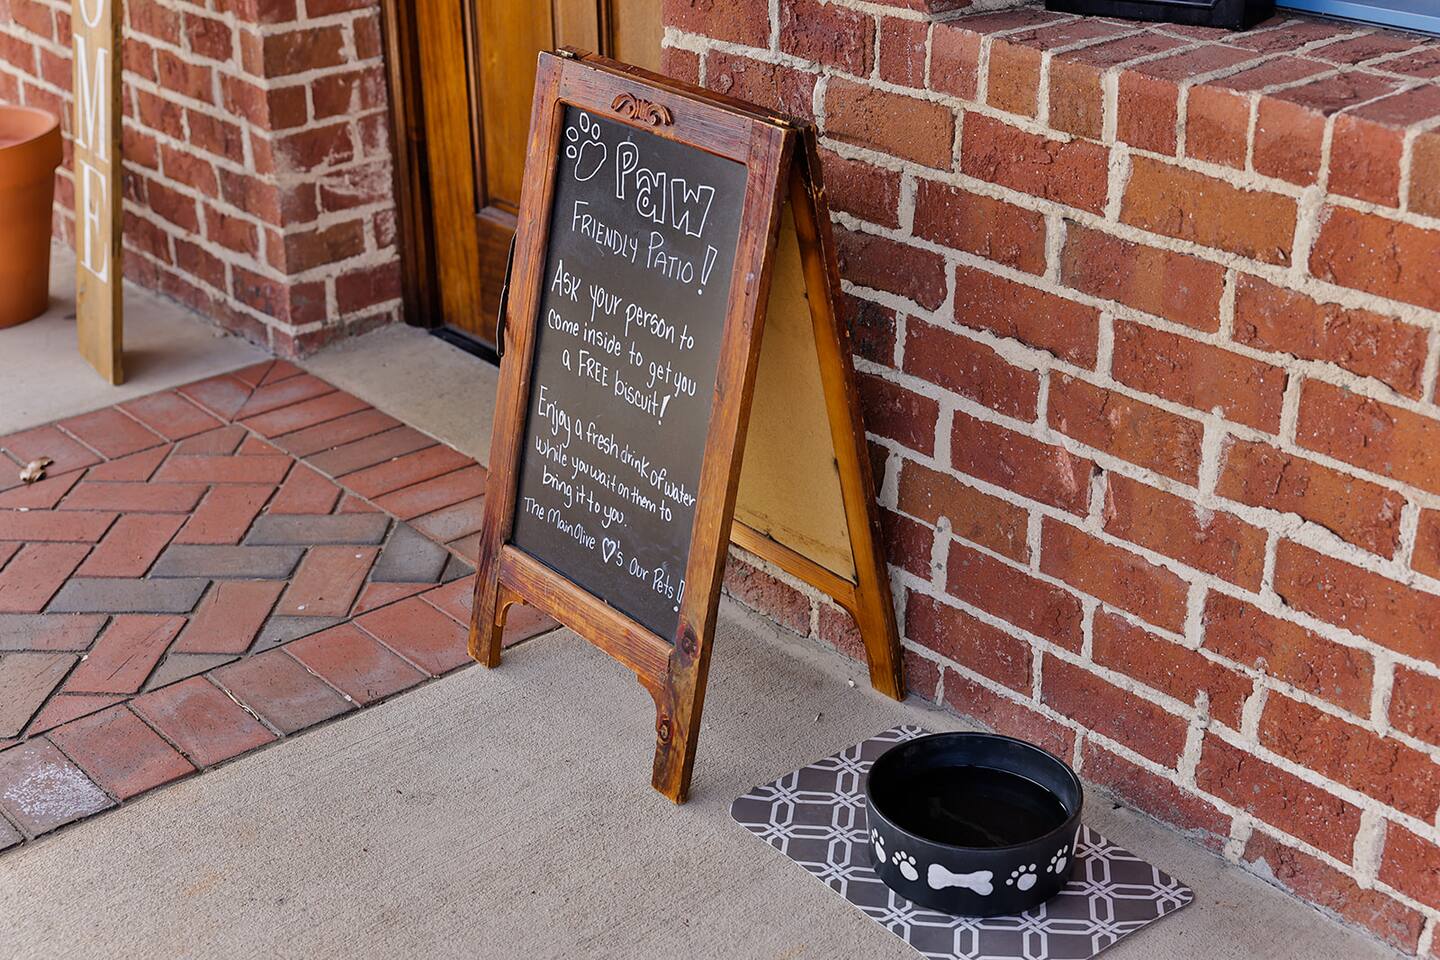 OME
Paw
Friendly Patio!
Ask your person to
come inside to get you
a FREE biscuit!
Enjoy a fresh drink of water
while you wait on them to
bring it to you.
The Main Olive ♡'s our Pets!!